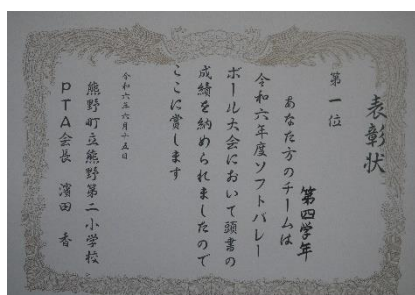 表彰状
第一位
第四学年
あなた方のチームは
令和六年度ソフトバレー
ボール大会において頭書の
成績を納められましたので
ここに賞します
令和六年六月十五日
熊野町立熊野第二小学校
PTA会長 濱田 香